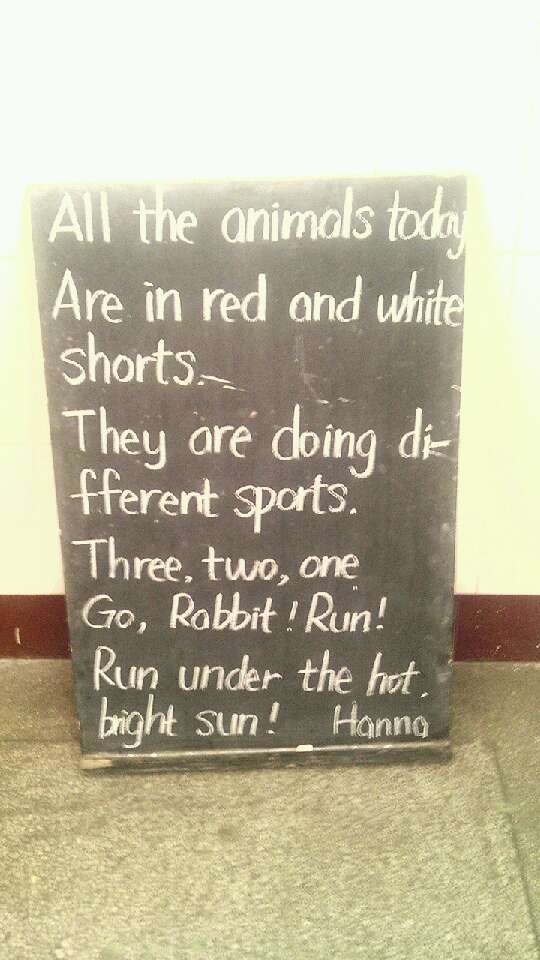 All the animals today
Are in red and white
shorts.
They are doing di-
fferent sports.
Three, two, one
Go, Rabbit! Run!
Run under the hot,
bright sun! Hanna